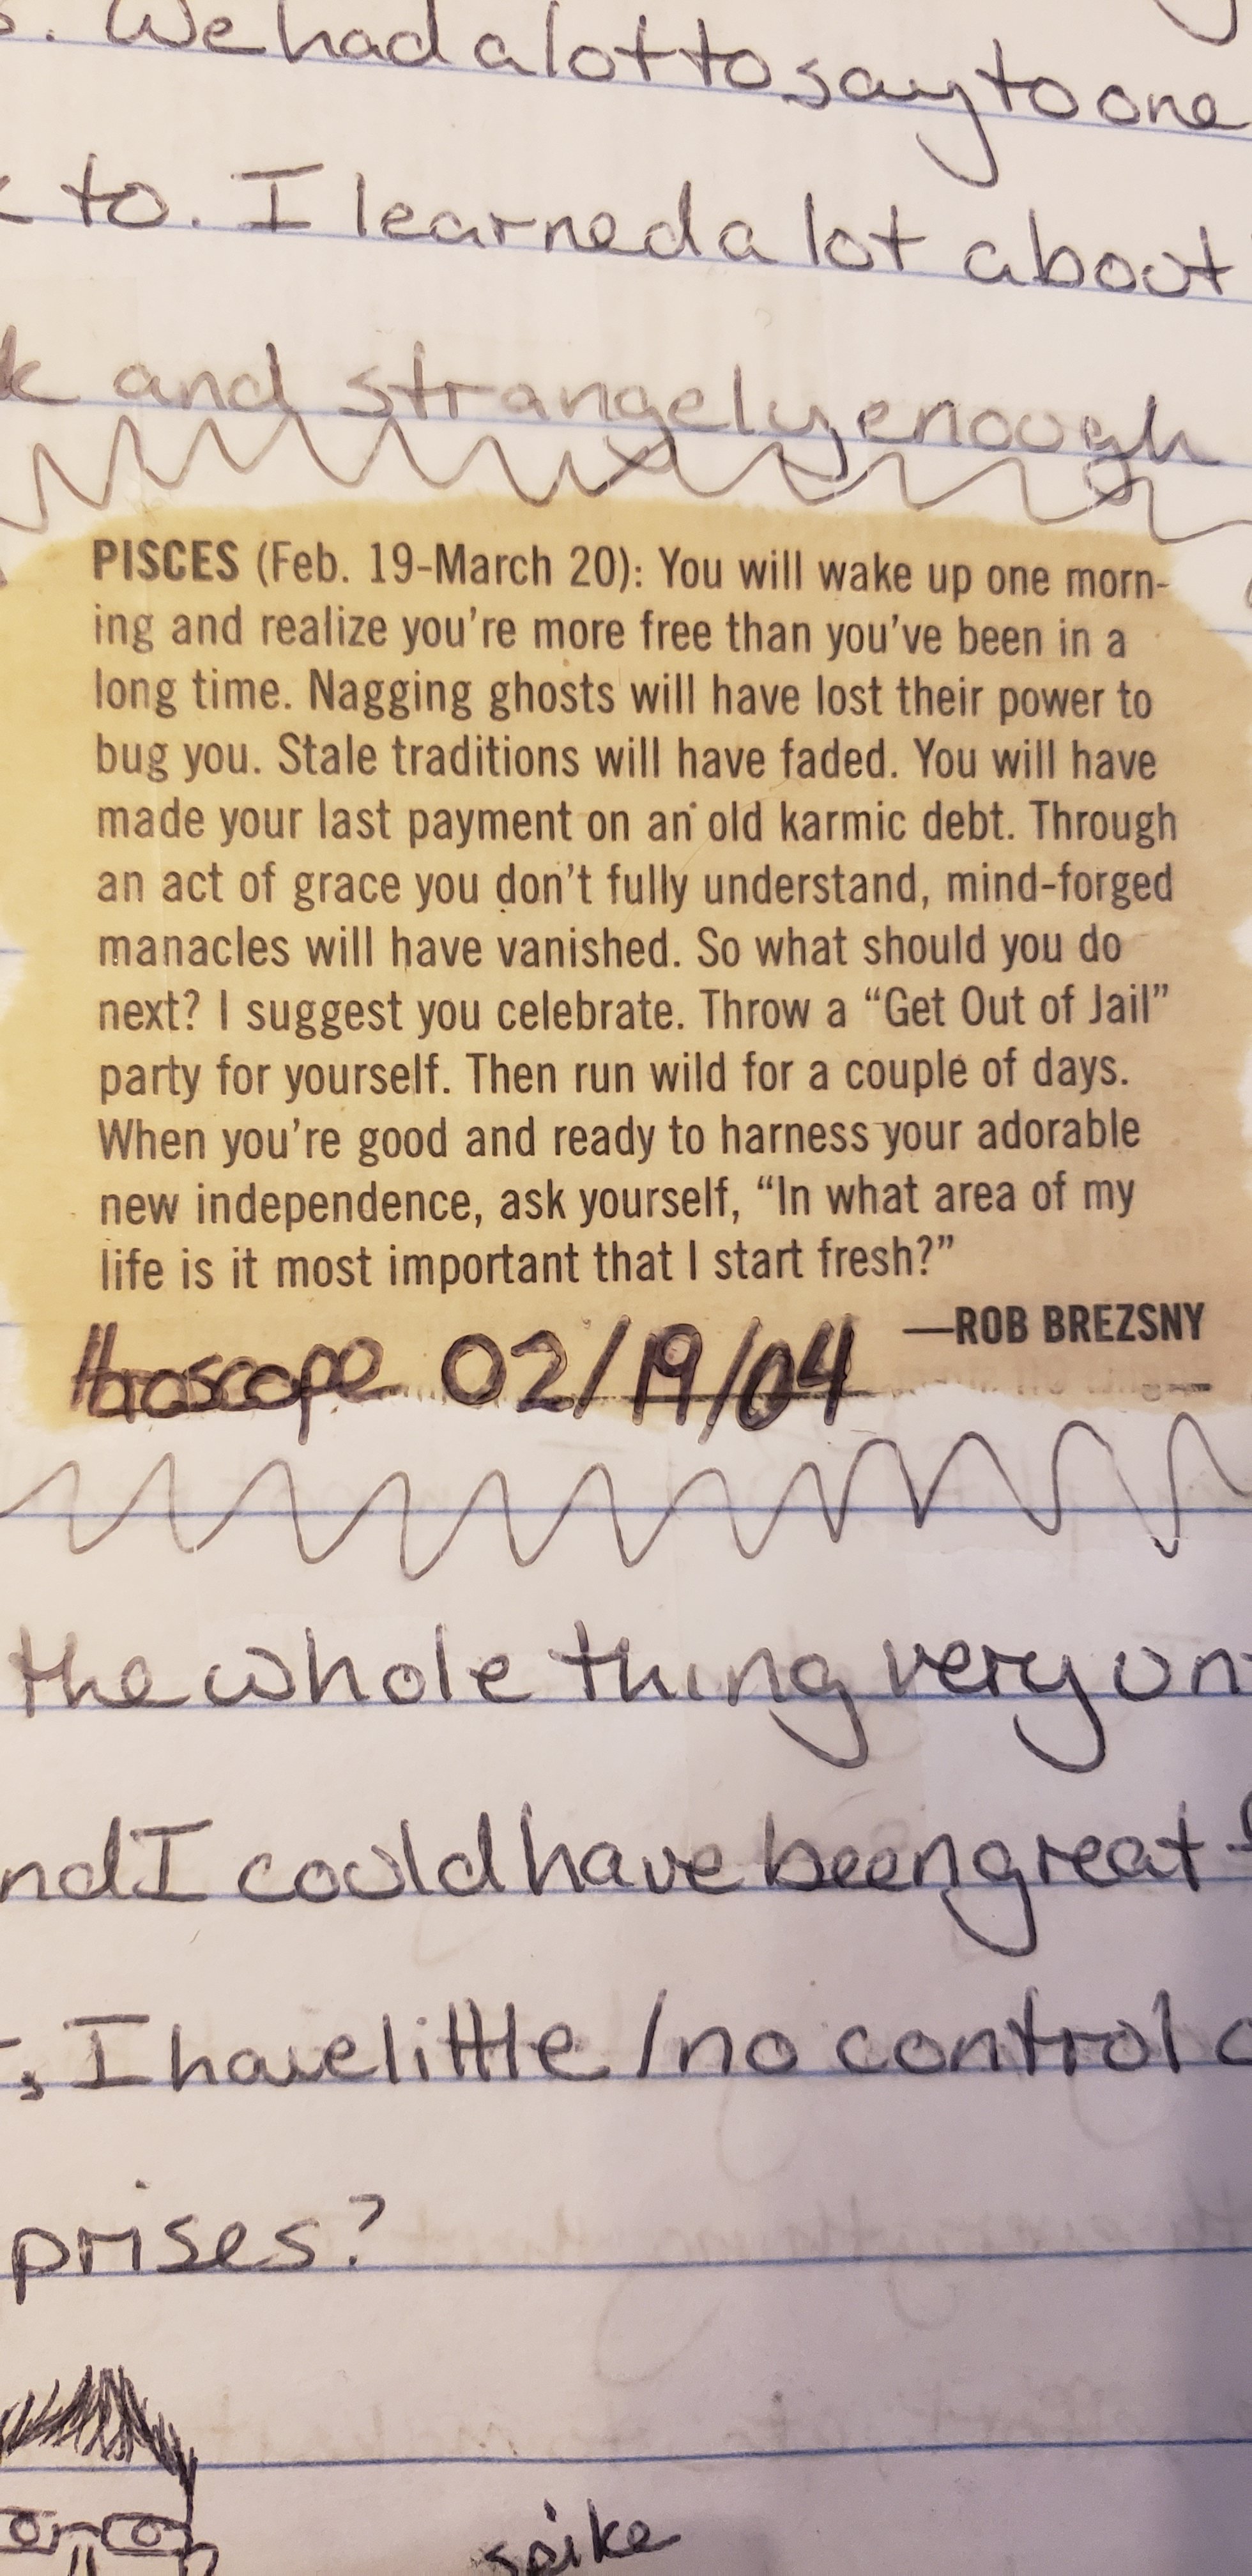 s. We had a lot to say to one
to. I learned a lot about
k and strangely enough
PISCES (Feb. 19-March 20): You will wake up one morn-
ing and realize you're more free than you've been in a
long time. Nagging ghosts will have lost their power to
bug you. Stale traditions will have faded. You will have
made your last payment on an old karmic debt. Through
an act of grace you don't fully understand, mind-forged
manacles will have vanished. So what should you do
next? I suggest you celebrate. Throw a “Get Out of Jail”
party for yourself. Then run wild for a couple of days.
When you're good and ready to harness your adorable
new independence, ask yourself, “In what area of my
life is it most important that I start fresh?”
—ROB BREZSNY
Horoscope 02/19/04
the whole thing very un
nd I could have been great
, I have little / no control
prises?
spike